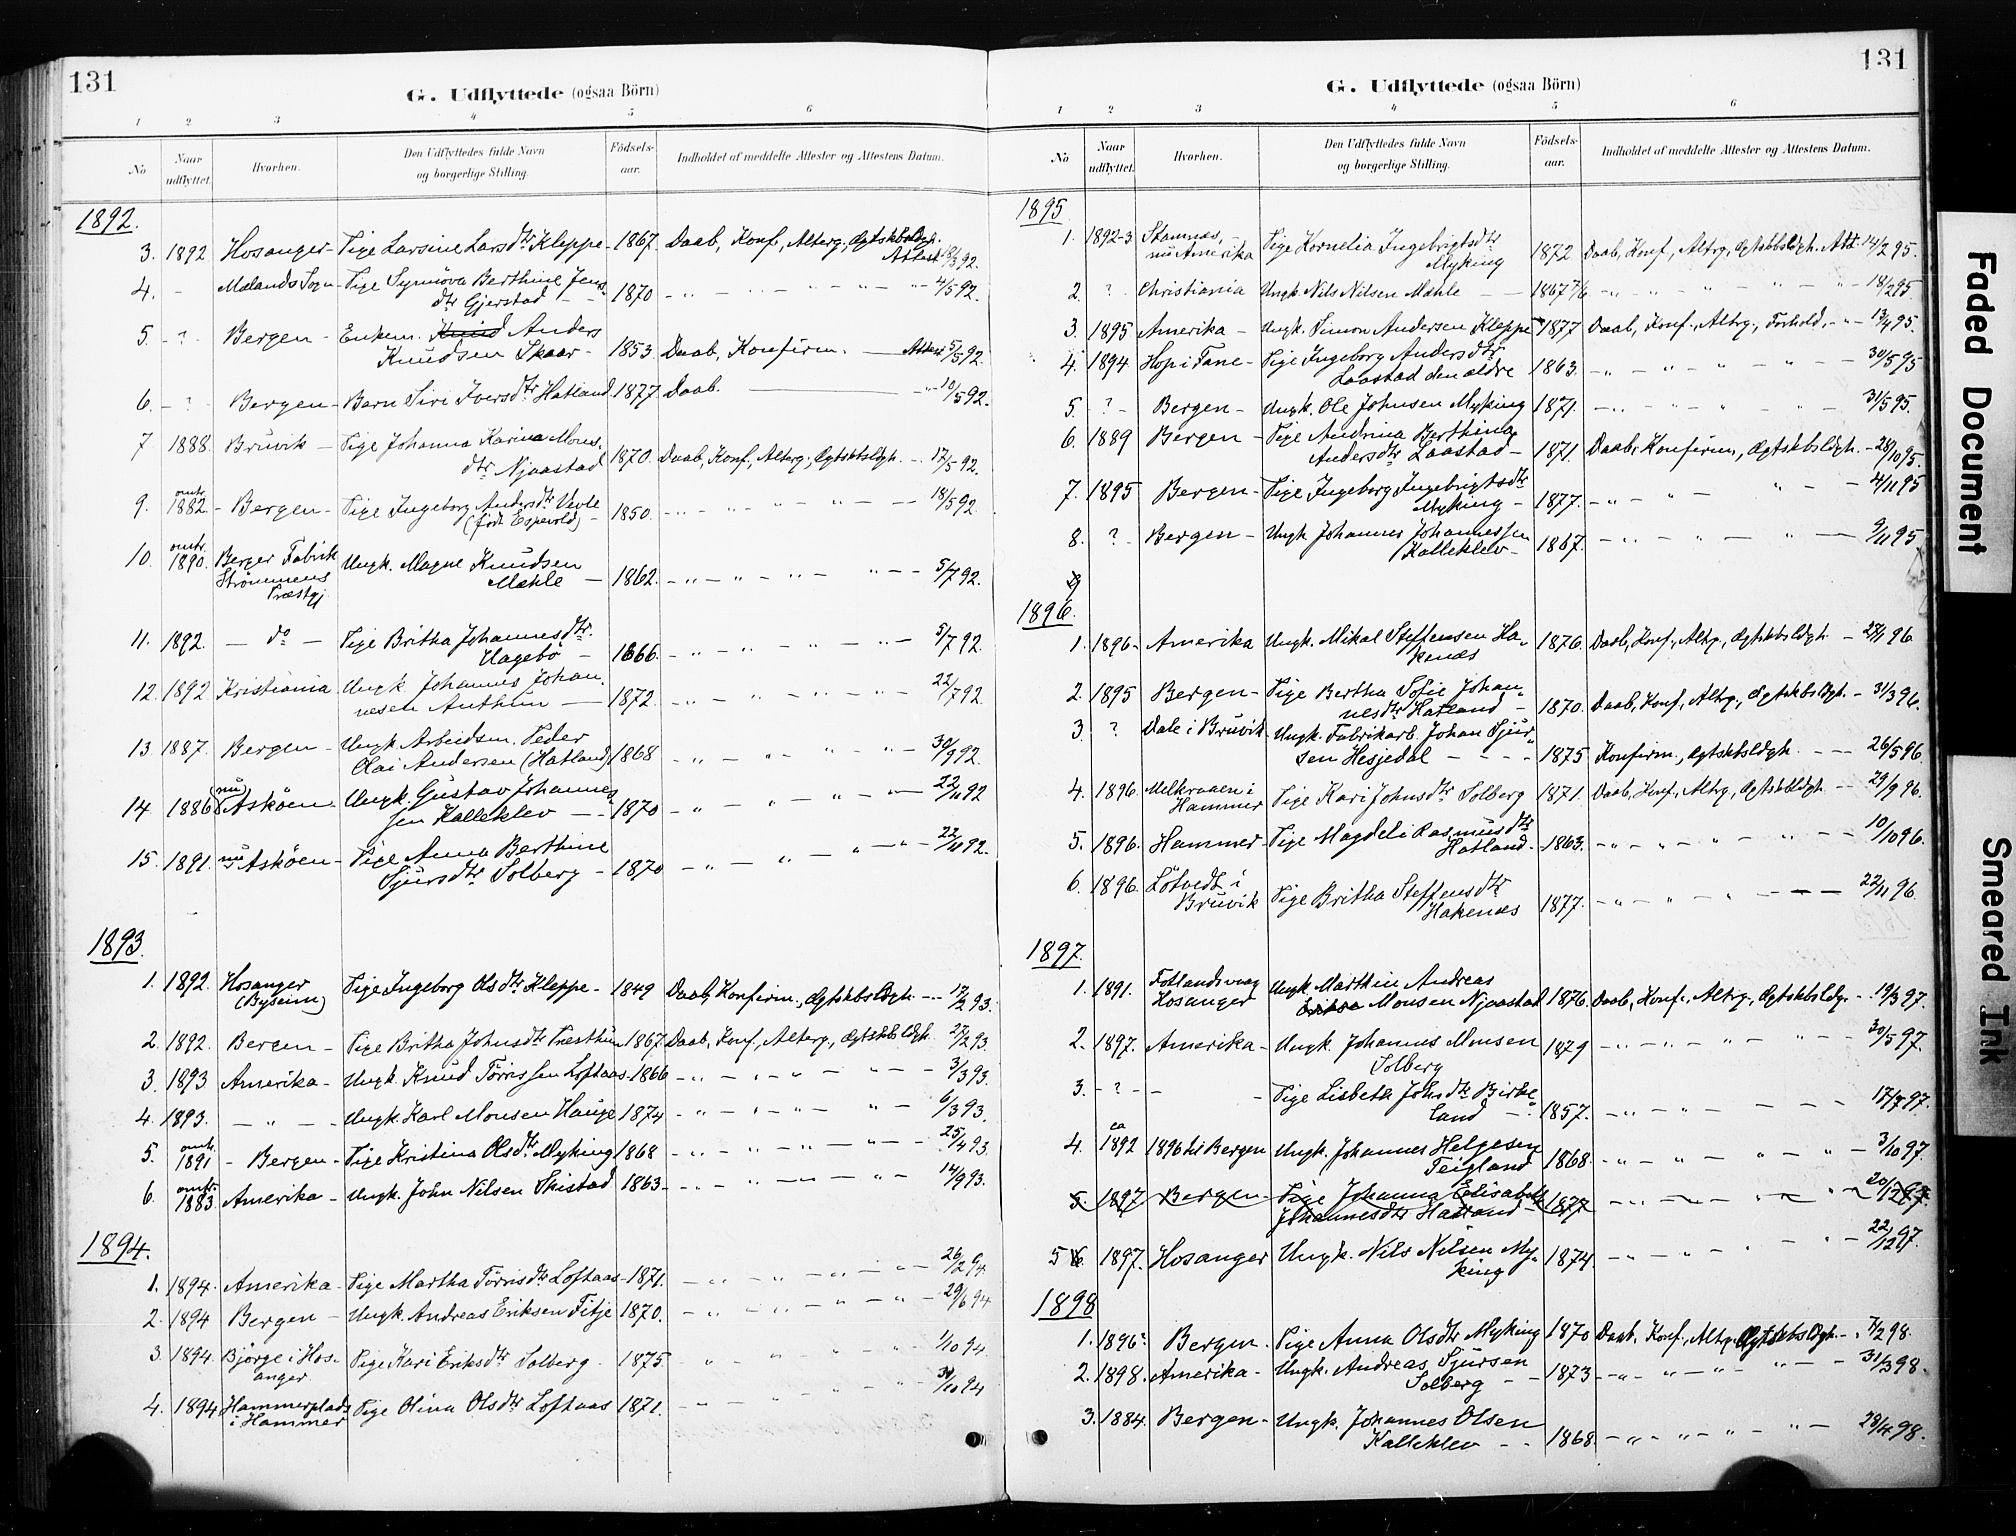 131
G. Udflyttede (ogsaa Börn)
1 2 3 4 5 6
No
Naar udflyttet.
Hvorhen.
Den Udflyttedes fulde Navn og borgerlige Stilling.
Födsels-aar.
Indholdet af meddelte Attester og Attestens Datum.
1892.
3. 1892 Hosanger - Pige Larsine Larsdtr Kleppe - 1867 Daab, Konf., Alterg., Ægtskbsldgh. Attest 18/3 92.
4. - Mælands Sogn - Pige Synnöva Berthine Jens-
dtr Gjerstad - - 1870 - " - " - " - " - 4/5 92.
5. - ? - Bergen - Enkem. Knud Anders
Knudsen Skaar - 1853. Daab, Konfirm. — Attest 5/5 92.
6. - ? Bergen - Barn Siri Iversdtr Hatland 1877 Daab. — " - 10/5 92.
7 1888. Bruvik - Pige Johanna Karina Mons-
dtr Njaastad 1870. Daab, Konf., Alterg., Ægtskbsldgh. - 17/5 92.
9. omtr. 1882 - Bergen - Pige Ingeborg Andersdtr Vevle
(född Espevold) - 1850. - " - " " " - - 18/5 92
10. omtr. 1890. Berger Fabrik
Strömmens
Præstgj. Ungk. Magne Knudsen
Mæhle - 1862. - " - " - " - " - - 5/7 92.
11. 1892. - do - Pige Britha Johannesdtr.
Hagebö - 1866. - " - " - " - " - 5/7 92.
12. 1892 Kristiania Ungk. Johannes Johan-
nesen Authun - 1872. - " - " - " - " - 22/7 92.
13 1887. Bergen - Ungk. Arbeidsm. Peder
Olai Andersen (Hatland) 1868 - " - " " - " - 30/9 92.
14 1886 (nu) Asköen. Ungk. Gustav Johannes-
sen Kalleklev - - 1870 - " - " " - 22/11 92
15. 1891. nu Asköen - Pige Anna Berthine
Sjursdtr Solberg - 1870 - " - " - " - " - 22/11 92.
1893.
1. 1892. Hosanger
(Byseim) Pige Ingeborg Olsdtr Kleppe - 1849 Daab, Konfirm., Ægtskbsldgh. - - 17/2 93.
2. 1892. Bergen - Pige Britha Johnsdtr Præsthun 1867. Daab, Konf., Alterg., Ægtskbsldgh. 27/2 93.
3. 1893 Amerika - Ungk. Knud Törrissen Loftaas - 1866 - " - " - " - - 3/3 93.
4. 1893. - " - Ungk. Karl Monsen Hauge 1874 - " - " - " - 6/3 93.
5. omtr. 1891 - Bergen - Pige Kristina Olsdtr. Myking 1868 - " - " " - " - 25/4 93.
6. omtr. 1883 Amerika - Ungk. John Nilsen Skistad 1863 - - " - " - " - 14/9 93.
1894.
1. 1894. Amerika - Pige Martha Törrisdtr Loftaas - 1871. - " - " - " - " - 26/2 94
2. 1894 Bergen - Ungk. Andreas Eriksen Fitje 1870. - " - " - " - 29/6 94
3. 1894. Björge i Hos-
anger. Pige Kari Eriksdtr Solberg. 1875 " - " - " - 1/10 94.
4. 1894 Hammerplads
i Hammer Pige Olina Olsdtr Loftaas 1871. - " - " - " - 30/10 94
131
G. Udflyttede (ogsaa Börn)
1 2 3 4 5 6
No
Naar udflyttet.
Hvorhen.
Den Udflyttedes fulde Navn og borgerlige Stilling.
Födsels-aar.
Indholdet af meddelte Attester og Attestens Datum.
1895.
1. 1892-3. Stamnæs, -
nu Amerika Pige Kornelia Ingebrigtsdtr
Myking 1872 Daab, Konf., Altrg., Ægtskbsldgh. Att. 14/2 95.
2. ? Christiania Ungk. Nils Nilsen Mæhle - - 1867 7/6 - " - " - " - " - 18/2 95.
3. 1895 Amerika - Ungk. Simon Andersen Kleppe 1877 Daab, Konf., Altrg., Forhold, - " - 13/4 95.
4. 1894 Hop i Fane - Pige Ingeborg Andersdtr
Laastad den ældre 1863. - " - " - " - " 30/5 95
5. - ? - Bergen - Ungk. Ole Johnsen Myking 1871. - " - " - " - 31/5 95.
6. 1889 Bergen - Pige Andrina Berthina
Andersdtr Laastad - 1871. Daab, Konfirm., Ægtskbsldgh. - 28/10 95.
7. 1895 Bergen - Pige Ingeborg Ingebrigtsdtr
Myking - 1877. - " - " - " - 4/11 95
8. ? Bergen - Ungk Johannes Johannessen
Kalleklev - 1867. - " - " - " - 9/11 95
9
1896.
1. 1896. Amerika Ungk. Mikal Steffensen Ha-
kenæs 1876. Daab, Konf., Altrg., Ægtskbsldgh. - 28/1 96
2. 1895 Bergen - Pige Bertha Sofie Johan-
nesdtr Hatland - 1870. Daab, Konf., Altrg., Ægtskbsldgh. - 31/3 96.
3. ? Dale i Bruvik. Ungk. Fabrikarb. Johan Sjur-
sen Hesjedal - - - 1875 Konfirm., Ægtskbsldgh. - - - 26/5 96.
4. 1896. Melkraaen i
Hammer Pige Kari Johnsdtr Solberg 1871. Daab, Konf., Altrg., Ægtskbldgh. - - 29/9 96.
5. 1896. Hammer - Pige Magdeli Rasmusdtr
Hatland. - 1863. - " - " - " - " - - 10/10 96.
6. 1896. Lötvedt i
Bruvik Pige Britha Steffensdtr
Hakenæs 1877. - " - " - " - - - 22/11 96.
1897.
1. 1891. Fotlandsvaag
Hosanger Ungk. Marthin Andreas
Monsen Njaastad 1876. Daab, Konf., Altrg., Ægtskbsldgh. - 19/3 97.
2. 1897. Amerika - Ungk. Johannes Monsen
Solberg 1879 - " - " - " - " - 30/5 97.
3. - ? - - - Pige Lisbeth Johsdtr Birke-
land - 1857. - " - " - - - - 17/7 97.
4. ca 1892 1896 til Bergen Ungk. Johannes Helgesen
Teigland 1868. - " - " - " - " - 3/10 97.
5 1897 Bergen - Pige Johanna Elisabeth
Johannesdtr Hatland - 1877 - " - " - " - 20/12 97.
5 6. 1897. Hosanger Ungk. Nils Nilsen My-
king 1874. - " - " - " - " - 22/12 97.
1898
1. 1896? Bergen. Pige Anna Olsdtr Myking 1870 Daab, Konf., Altrg., Ægtskbsldgh. - 7/2 98.
2. 1898. Amerika - Ungk. Andreas Sjursen
Solberg - - 1873 - " - " - " - " - - 31/3 98.
3. 1884. Bergen - Ungk. Johannes Olsen
Kalleklev - - 1868. - " - " - " - " - 28/4 98.
Faded Document
Smeared Ink